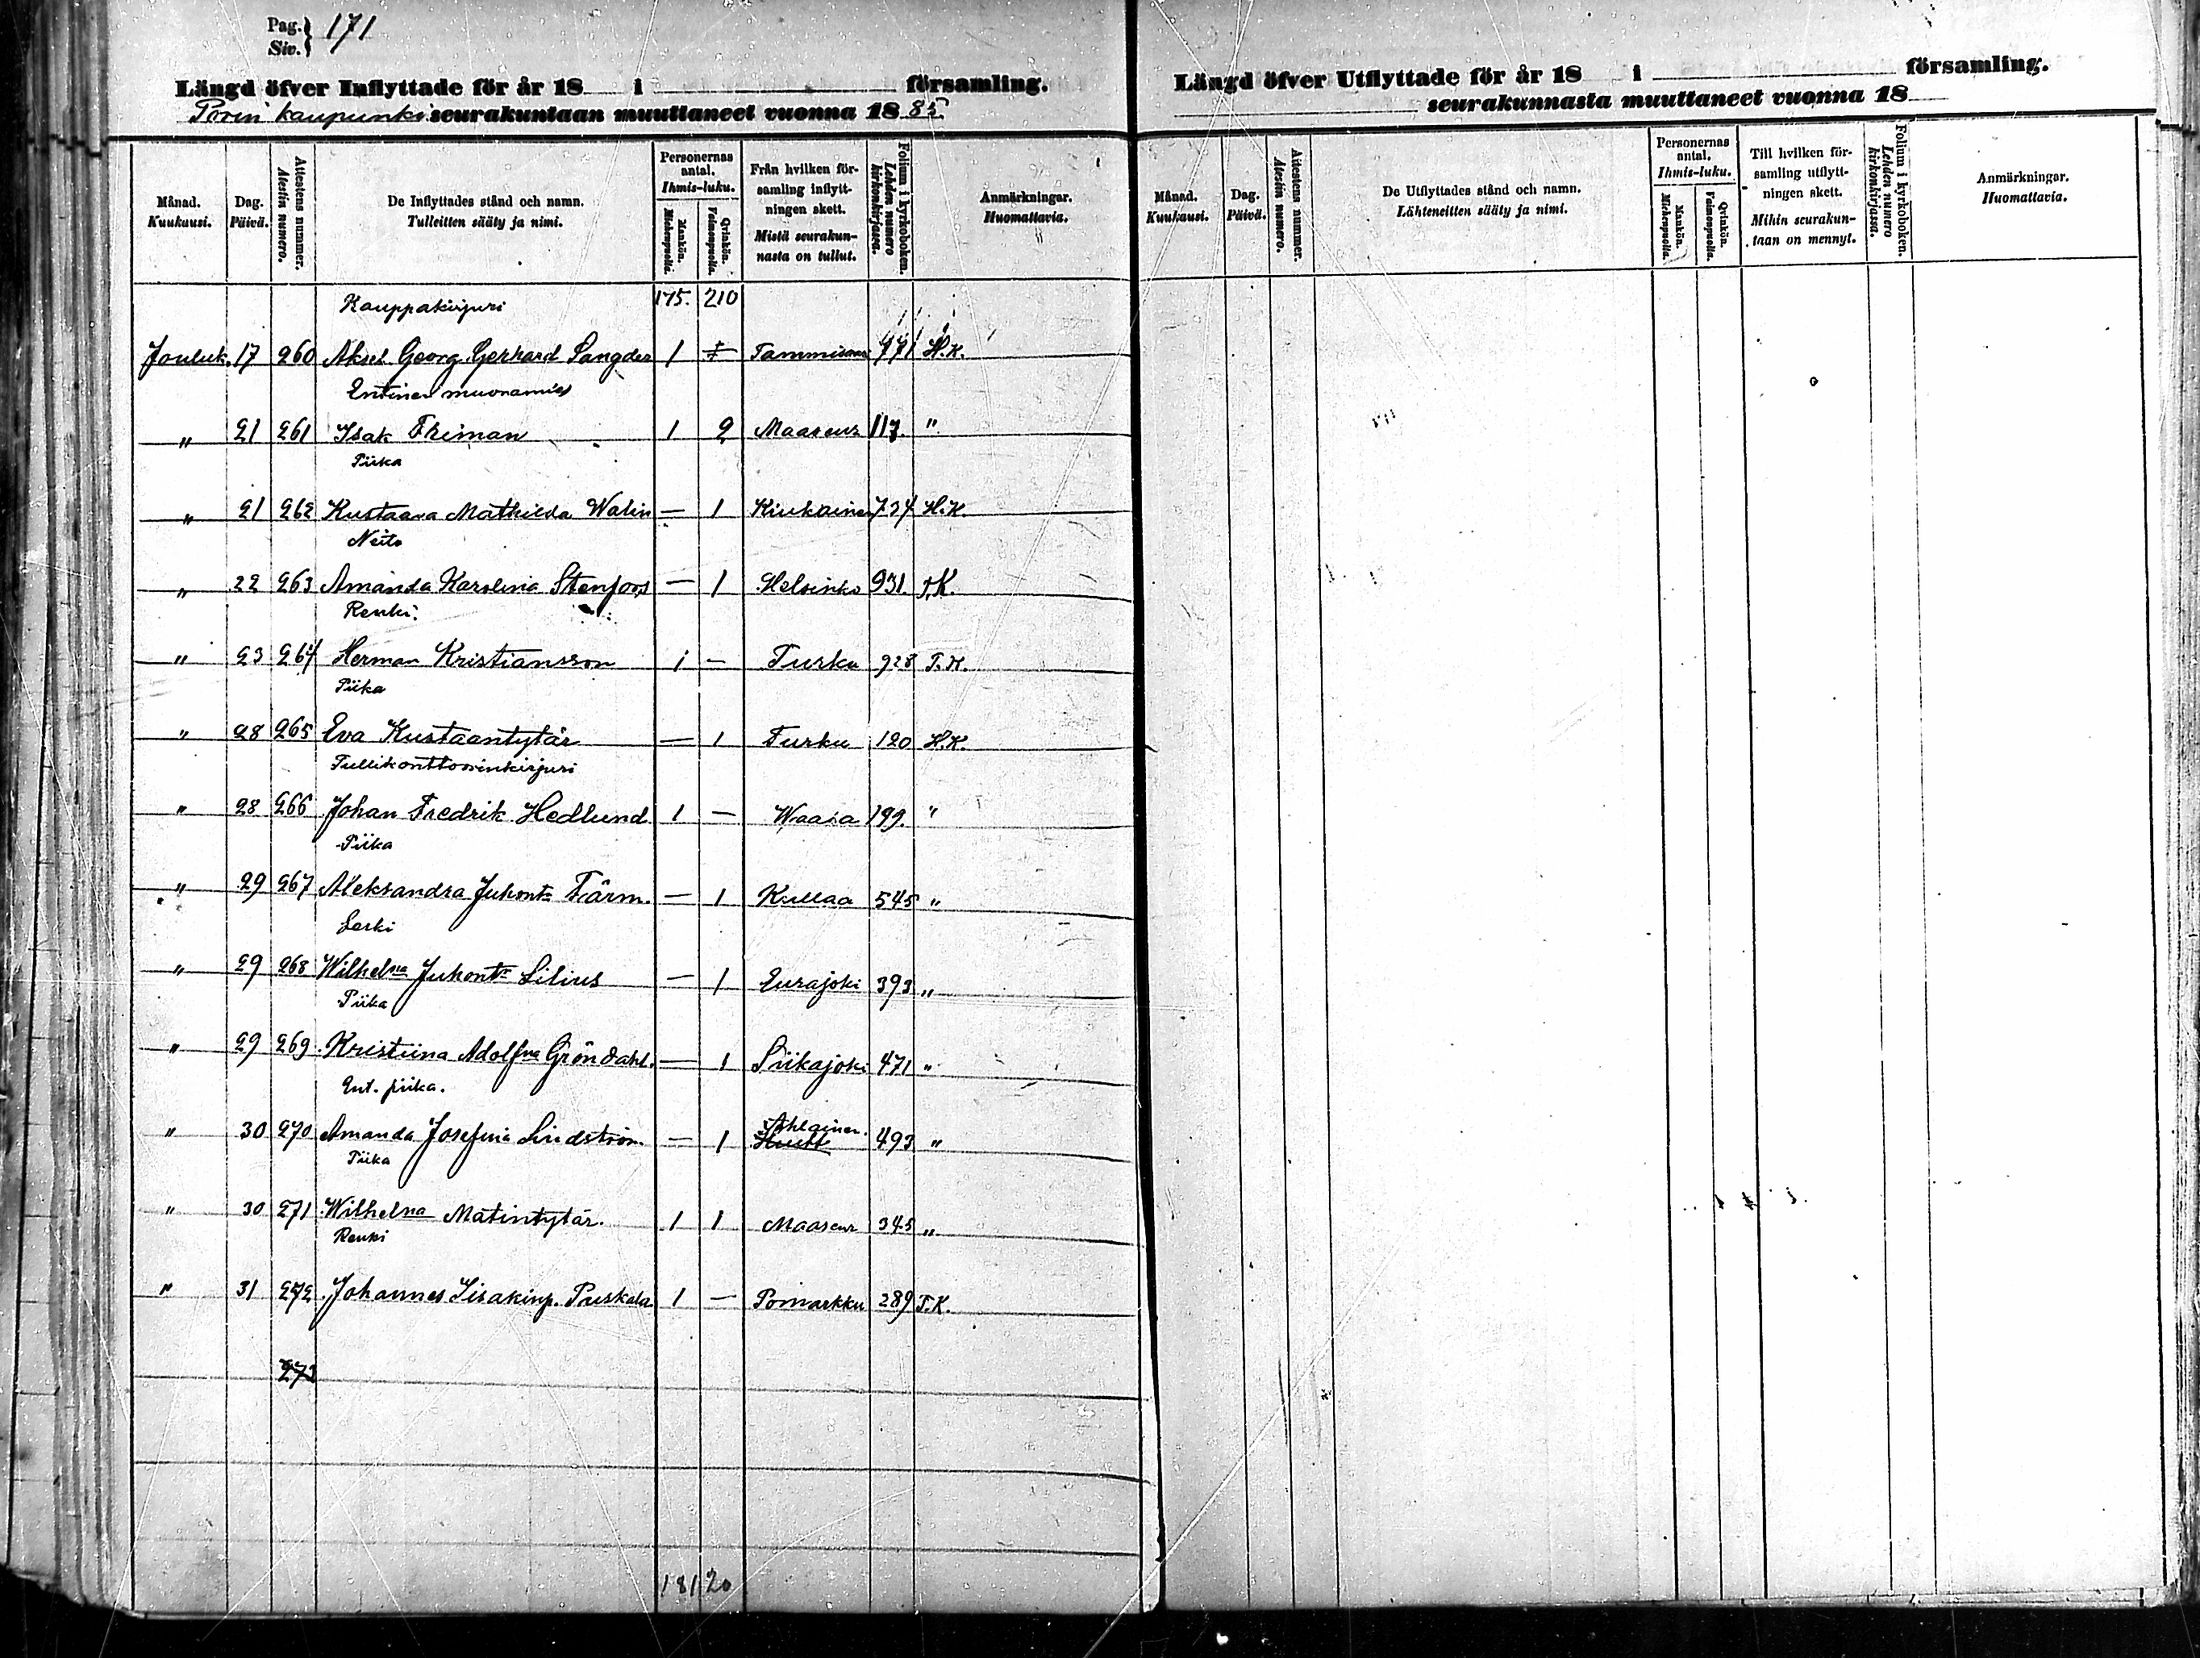 Pag. 171
Siv.
Längd öfver Inflyttade för år 18 i församling.
Porin kaupunki seurakuntaan muuttaneet vuonna 1885.
Månad. Kuukausi.
Dag. Päivä.
Attestens nummer. Atestin numero.
De Inflyttades stånd och namn. Tulleitten sääty ja nimi.
Personernas antal. Ihmis-luku.
Mankön. Miehenpuolia.
Qvinkön. Vaimonpuolia.
Från hvilken församling inflyttningen skett. Mistä seurakunnasta on tullut.
Folium i kyrkoboken. Lehden numero kirkonkirjassa.
Anmärkningar. Huomattavia.
Kauppakirjuri 175. 210
Jouluk. 17 260 Aksel Georg Gerhard 1 771 H.K.
Entinen muonamies
" 21 261 Isak Friman 1 2 Maaseur 117. "
Piika
" 21 262 Kustaava Mathilda Walin — 1 Kiukainen 724 H.K.
Neito
" 22 263 Amanda Karolina Stenfors — 1 Helsinki 931. T.K.
Renki
" 23 264 Herman Kristiansson 1 — Turku 928 T.K.
Piika
" 28 265 Eva Kustaantytär — 1 Turku 120 H.K.
Tullikonttoorinkirjuri
" 28 266 Johan Fredrik Hedlund 1 — Waasa 199. "
Piika
" 29 267 Aleksandra Juhont. Färm. — 1 Kullaa 545 "
Leski
" 29 268 Wilhelna Juhont. Lilius — 1 Eurajoki 393 "
Piika
" 29 269 Kristiina Adolfna Gröndahl. — 1 Siikajoki 471 "
Ent. piika.
" 30 270 Amanda Josefina Lindström — 1 Ahlainen 493 "
Piika
" 30 271 Wilhelna Matintytär. 1 1 Maaseur 345 "
Renki
" 31 272 Johannes Iisakinp. Puskala 1 — Pomarkku 289 T.K.
273
181 20
Längd öfver Utflyttade för år 18 i församling.
seurakunnasta muuttaneet vuonna 18
Månad. Kuukausi.
Dag. Päivä.
Attestens nummer. Atestin numero.
De Utflyttades stånd och namn. Lähteneitten sääty ja nimi.
Personernas antal. Ihmis-luku.
Mankön. Miehenpuolia.
Qvinkön. Vaimonpuolia.
Till hvilken församling utflyttningen skett. Mihin seurakuntaan on mennyt.
Folium i kyrkoboken. Lehden numero kirkonkirjassa.
Anmärkningar. Huomattavia.